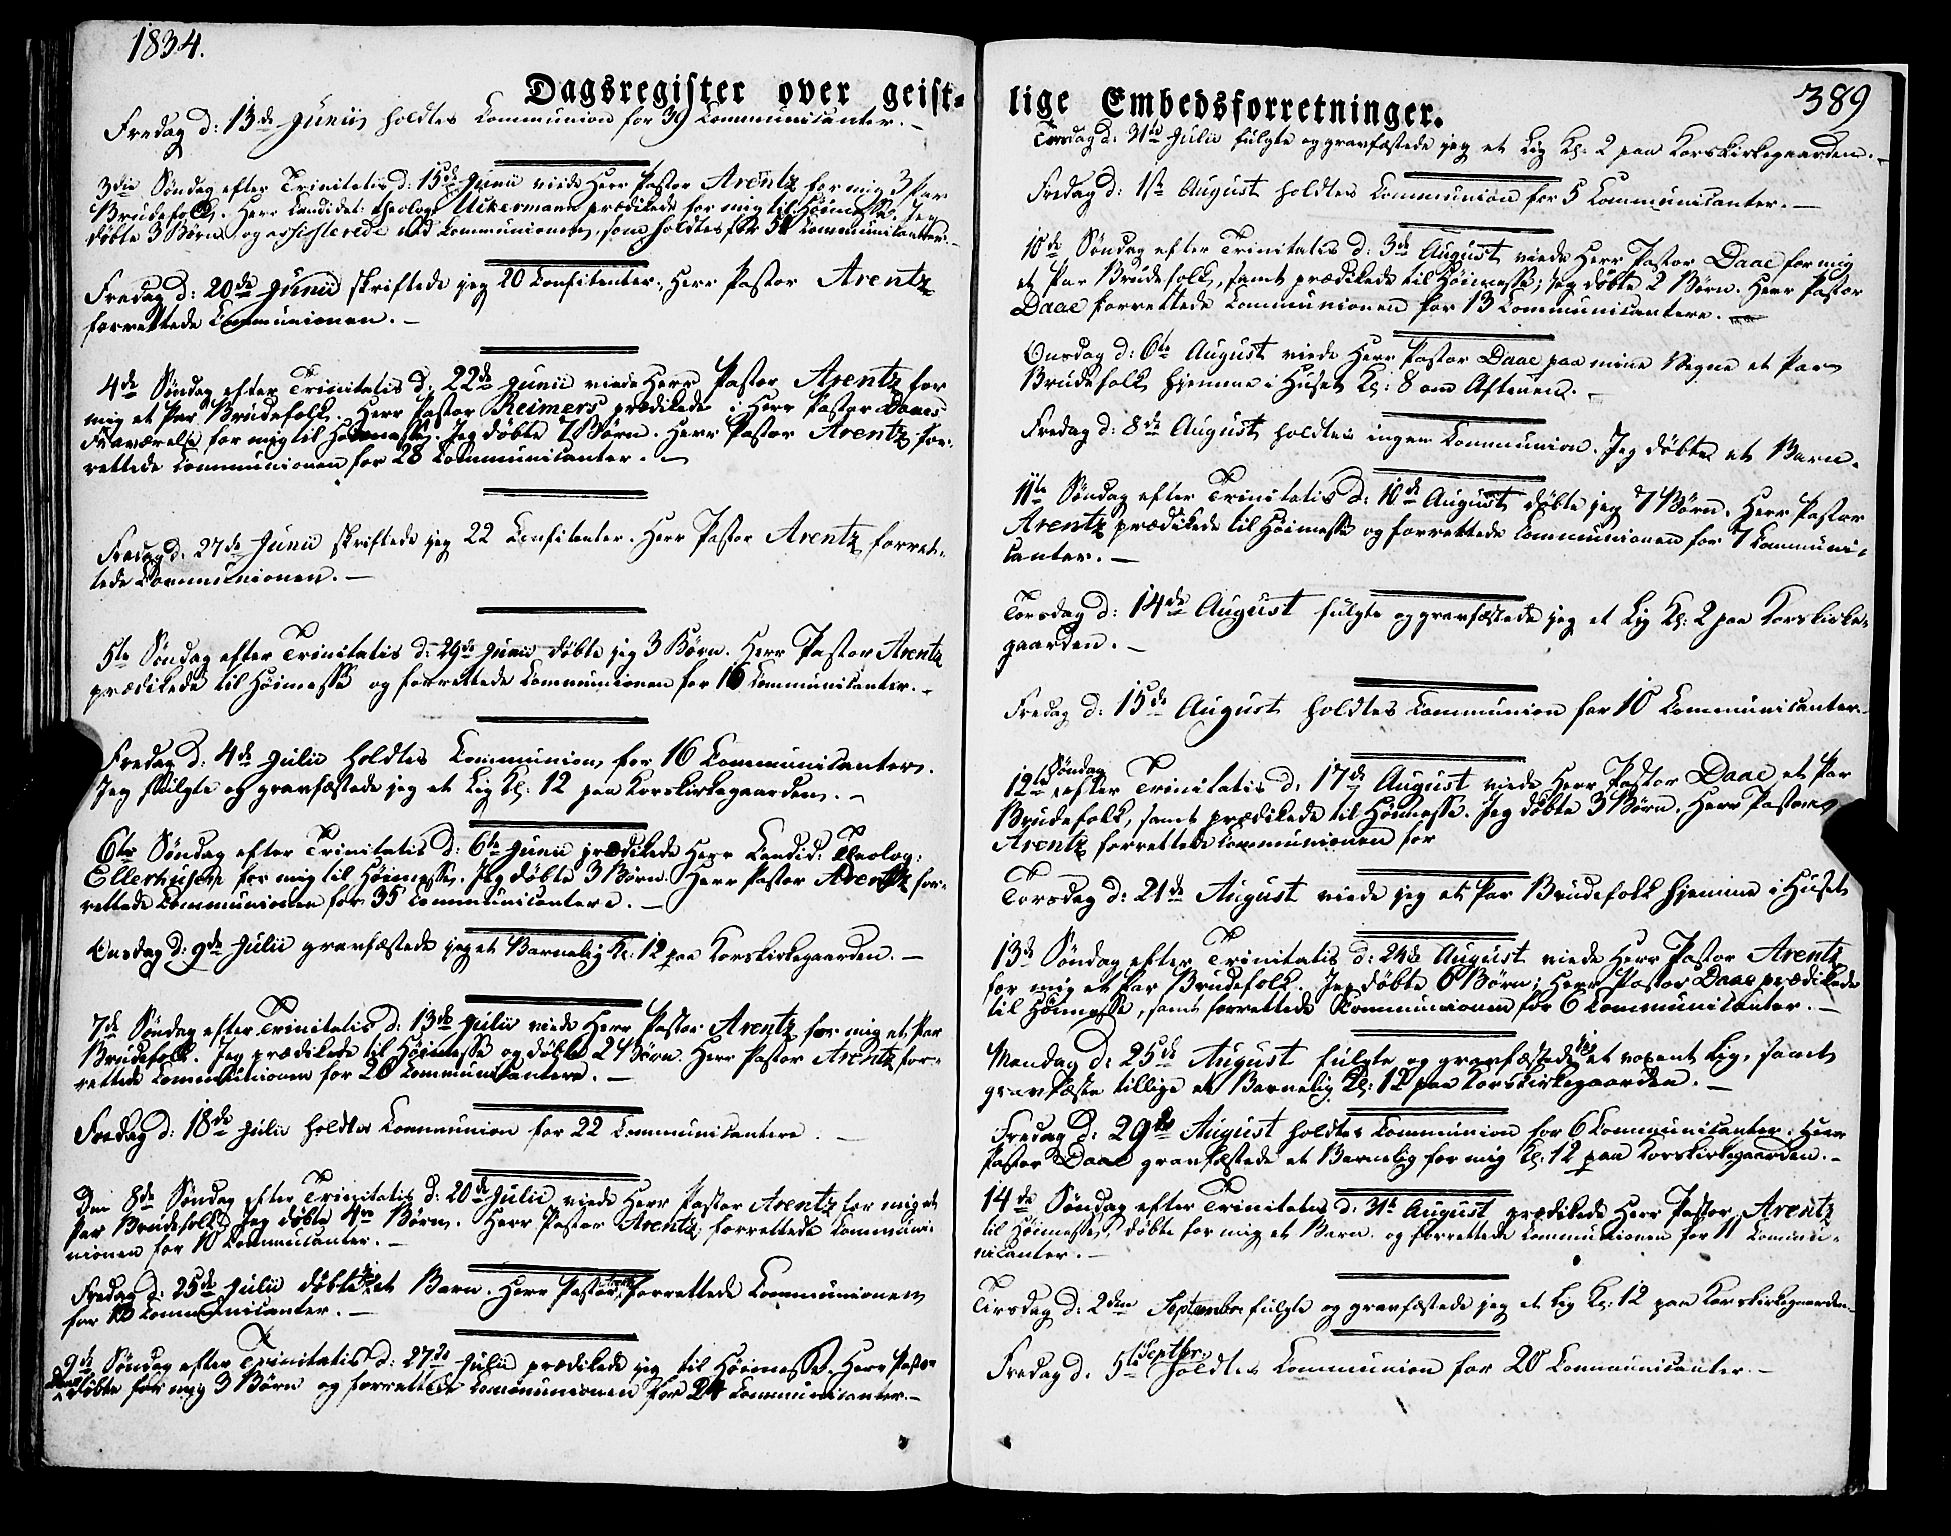 1834.
Dagsregister over geist-
Fredag d: 13de Junii holdtes Communion for 39 Communicanter. —
3die Søndag efter Trinitatis d: 15de Junii viede Herr Pastor Arentz for mig 3 Par
Brudefolk. Herr Candidat: theolog: Uckermann prædikede for mig til Høimesse. Jeg
døbte 3 Børn og assisterede ved Communionen, som holdtes for 54 Communicanter. —
Fredag d: 20de Junii skriftede jeg 20 Confitenter, Herr Pastor Arentz
forrettede Communionen. —
4de Søndag efter Trinitatis d: 22de Junii viede Herr Pastor Arentz for
mig et Par Brudefolk. Herr Pastor Reimers prædikede i Herr Pastor Daaes
Fraværelse for mig til Høimesse. Jeg døbte 7 Børn. Herr Pastor Arentz for-
rettede Communionen for 28 Communicanter. —
Fredag d: 27de Junii skriftede jeg 22 Confitenter. Herr Pastor Arentz forret-
tede Communionen. —
5te Søndag efter Trinitatis d: 29de Junii døbte jeg 3 Børn. Herr Pastor Arentz
prædikede til Høimesse og forrettede Communionen for 16 Communicanter. —
Fredag d: 4de Julii holdtes Communion for 16 Communicanter.
Jeg fulgte og gravfæstede jeg et Lig Kl: 12 paa Korskirkegaarden. —
6te Søndag efter Trinitatis d: 6te Junii prædikede Herr Candid: Theolog:
Ellerhusen for mig til Høimesse. Jeg døbte 3 Børn. Herr Pastor Arentz for-
rettede Communionen for 35 Communicantere. —
Onsdag d: 9de Julii gravfæstede jeg et Barnelig Kl: 12 paa Korskirkegaarden. —
7de Søndag efter Trinitatis d: 13de Julii viede Herr Pastor Arentz for mig et Par
Brudefolk. Jeg prædikede til Høimesse og døbte 2 Børn. Herr Pastor Arentz for-
rettede Communionen for 20 Communicantere. —
Fredag d: 18de Julii holdtes Communion for 22 Communicantere. —
Den 8de Søndag efter Trinitatis d: 20de Julii viede Herr Pastor Arentz for mig et
Par Brudefolk. Jeg døbte 4re Børn. Herr Pastor Arentz forrettede Commun-
nionen for 10 Communicanter. —
Fredag d: 25de Julii døbte jeg et Barn. Herr Pastor Arentz forrettede Communionen
for 13 Communicanter. —
9de Søndag efter Trinitatis d: 27de Julii prædikede jeg til Høimesse. Herr Pastor
Daae døbte for mig 3 Børn og forrettede Communionen for 24 Communicanter. —
389
lige Embedsforretninger.
Torsdag d: 31te Julii fulgte og gravfæstede jeg et Lig Kl: 2 paa Korskirkegaarden. —
Fredag d: 1ste August holdtes Communion for 5 Communicanter. —
10de Søndag efter Trinitatis d: 3de August viede Herr Pastor Daae for mig
et Par Brudefolk, samt prædikede til Høimesse; jeg døbte 2 Børn. Herr Pastor
Daae forrettede Communionen for 13 Communicantere. —
Onsdag d: 6te August viede Herr Pastor Daae paa mine Vegne et Par
Brudefolk hjemme i Huset Kl: 8 om Aftenen. —
Fredag d: 8de August holdtes ingen Communion. Jeg døbte et Barn.
11te Søndag efter Trinitatis d: 10de August døbte jeg 7 Børn. Herr Pastor
Arentz prædikede til Høimesse og forrettede Communionen for 7 Communi-
canter. —
Torsdag d: 14de August fulgte og gravfæstede jeg et Lig Kl: 2 paa Korskirke-
gaarden. —
Fredag d: 15de August holdtes Communion for 10 Communicanter. —
12te Søndag efter Trinitatis d: 17de August viede Herr Pastor Daae et Par
Brudefolk, samt prædikede til Høimesse. Jeg døbte 3 Børn. Herr Pastor
Arentz forrettede Communionen for
Torsdag d: 21de August viede jeg et Par Brudefolk hjemme i Huset
13de Søndag efter Trinitatis d: 24de August viede Herr Pastor Arentz
for mig et Par Brudefolk. Jeg døbte 6 Børn; Herr Pastor Daae prædikede
til Høimesse, samt forrettede Kommunionen for 6 Communicanter. —
Mandag d: 25de August fulgte og gravfæstede jeg et voxent Lig, samt
gravfæste tillige et Barnelig Kl: 12 paa Korskirkegaarden. —
Fredag d: 29de August holdtes Communion for 6 Communicanter. Herr
Pastor Daae gravfæstede et Barnelig for mig Kl: 12 paa Korskirkegaarden. —
14de Søndag efter Trinitatis d: 31te August prædikede Herr Pastor Arentz
til Høimesse, døbte for mig et Barn og forrettede Communionen for 11 Commu-
nicanter. —
Tirsdag d: 2den Septembr fulgte og gravfæstede jeg et Lig Kl: 12 paa Korskirkegaarden. —
Fredag d: 5te Septbr: holdtes Communion for 20 Communicanter. —